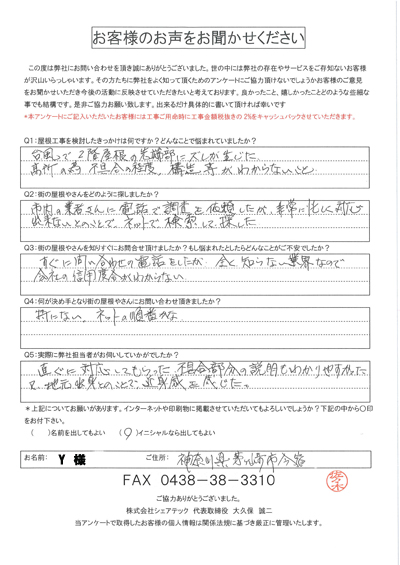 お客様のお声をお聞かせください
この度は弊社にお問い合わせを頂き誠にありがとうございました。世の中には弊社の存在やサービスをご存知ないお客様
が沢山いらっしゃいます。その方たちに弊社をよく知って頂くためのアンケートにご協力頂けないでしょうかお客様のご意見
をお聞かせいただき今後の活動に反映させていただきたいと考えております。良かったこと、嬉しかったことどのような些細な
事でも結構です。是非ご協力お願い致します。出来るだけ具体的に書いて頂ければ幸いです
*本アンケートにご記入いただいたお客様には工事ご用命時に工事金額税抜きの2%をキャッシュバックさせていただきます。
Q1:屋根工事を検討したきっかけは何ですか?どんなことで悩まれていましたか?
台風で2階屋根の先端部にズレが生じた
高所の為不具合の程度、構造等がわからないこと
Q2:街の屋根やさんをどのように探しましたか?
市内の業者さんに電話で調査を依頼したが、非常に忙しく対応
出来ないとのことで、ネットで検索して探した
Q3:街の屋根やさんを知りすぐにお問合せ頂けましたか?もし悩まれたとしたらどんなことがご不安でしたか?
すぐに問い合わせの電話をしたが、全く知らない業界なので
会社の信用度合がわからない
Q4:何が決め手となり街の屋根やさんにお問い合わせ頂きましたか?
特にない、ネットの順番かな
Q5:実際に弊社担当者がお伺いしていかがでしたか?
直ぐに対応してもらった 不具合部分の説明もわかりやすかった
又、地元出身とのことで、近身感を感じた。
*上記についてお願いがあります。インターネットや印刷物に掲載させていただいてもよろしいでしょうか?下記の中から〇印
をお付下さい。
( )名前を出してもよい (〇)イニシャルなら出してもよい
お名前: Y 様 ご住所: 神奈川県茅ヶ崎市今宿
FAX 0438-38-3310
ご協力ありがとうございました。
株式会社シェアテック 代表取締役 大久保 誠二
当アンケートで取得したお客様の個人情報は関係法規に基づき厳正に管理いたします。